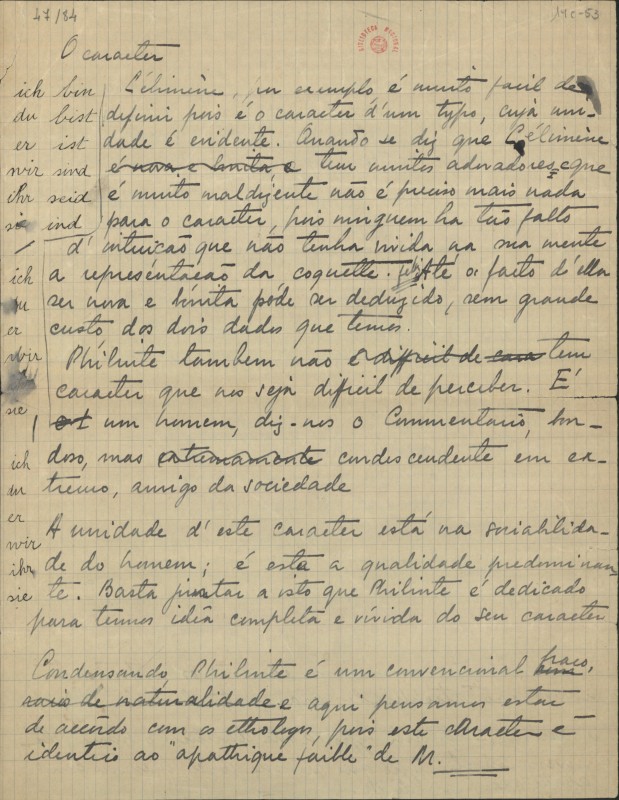 47/84
14C-53
O caracter
ich bin
du bist
er ist
wir sind
ihr seid
sie sind
ich
du
er
wir
sie
ich
du
er
wir
ihr
sie
Célimène, por exemplo é muito facil de
definir pois é o caracter d'um typo, cuja uni-
dade é evidente. Quando se diz que Célimène
é nova e bonita e tem muitos adoradores, e que
é muito maldizente não é preciso mais nada
para o caracter, pois ninguem ha tão falto
d'intuição que não tenha vivida na sua mente
a representação da coquette. Até o facto d'ella
ser nova e bonita póde ser deduzido, sem grande
custo dos dois dados que temos.
Philinte tambem não é difficil de tem
caracter que nos seja difficil de perceber. É
um homem, diz-nos o Commentario, bon-
doso, mas extremamente condescendente em ex-
tremo, amigo da sociedade
A unidade d'este caracter está na sociabilida-
de do homem; é esta a qualidade predominan-
te. Basta juntar a isto que Philinte é dedicado
para termos idêa completa e vívida do seu caracter
Condensando, Philinte é um convencional fraco,
de naturalidade e aqui pensamos estar
de accôrdo com os ethologos, pois este caracter é
identico ao "apathique faible" de M.